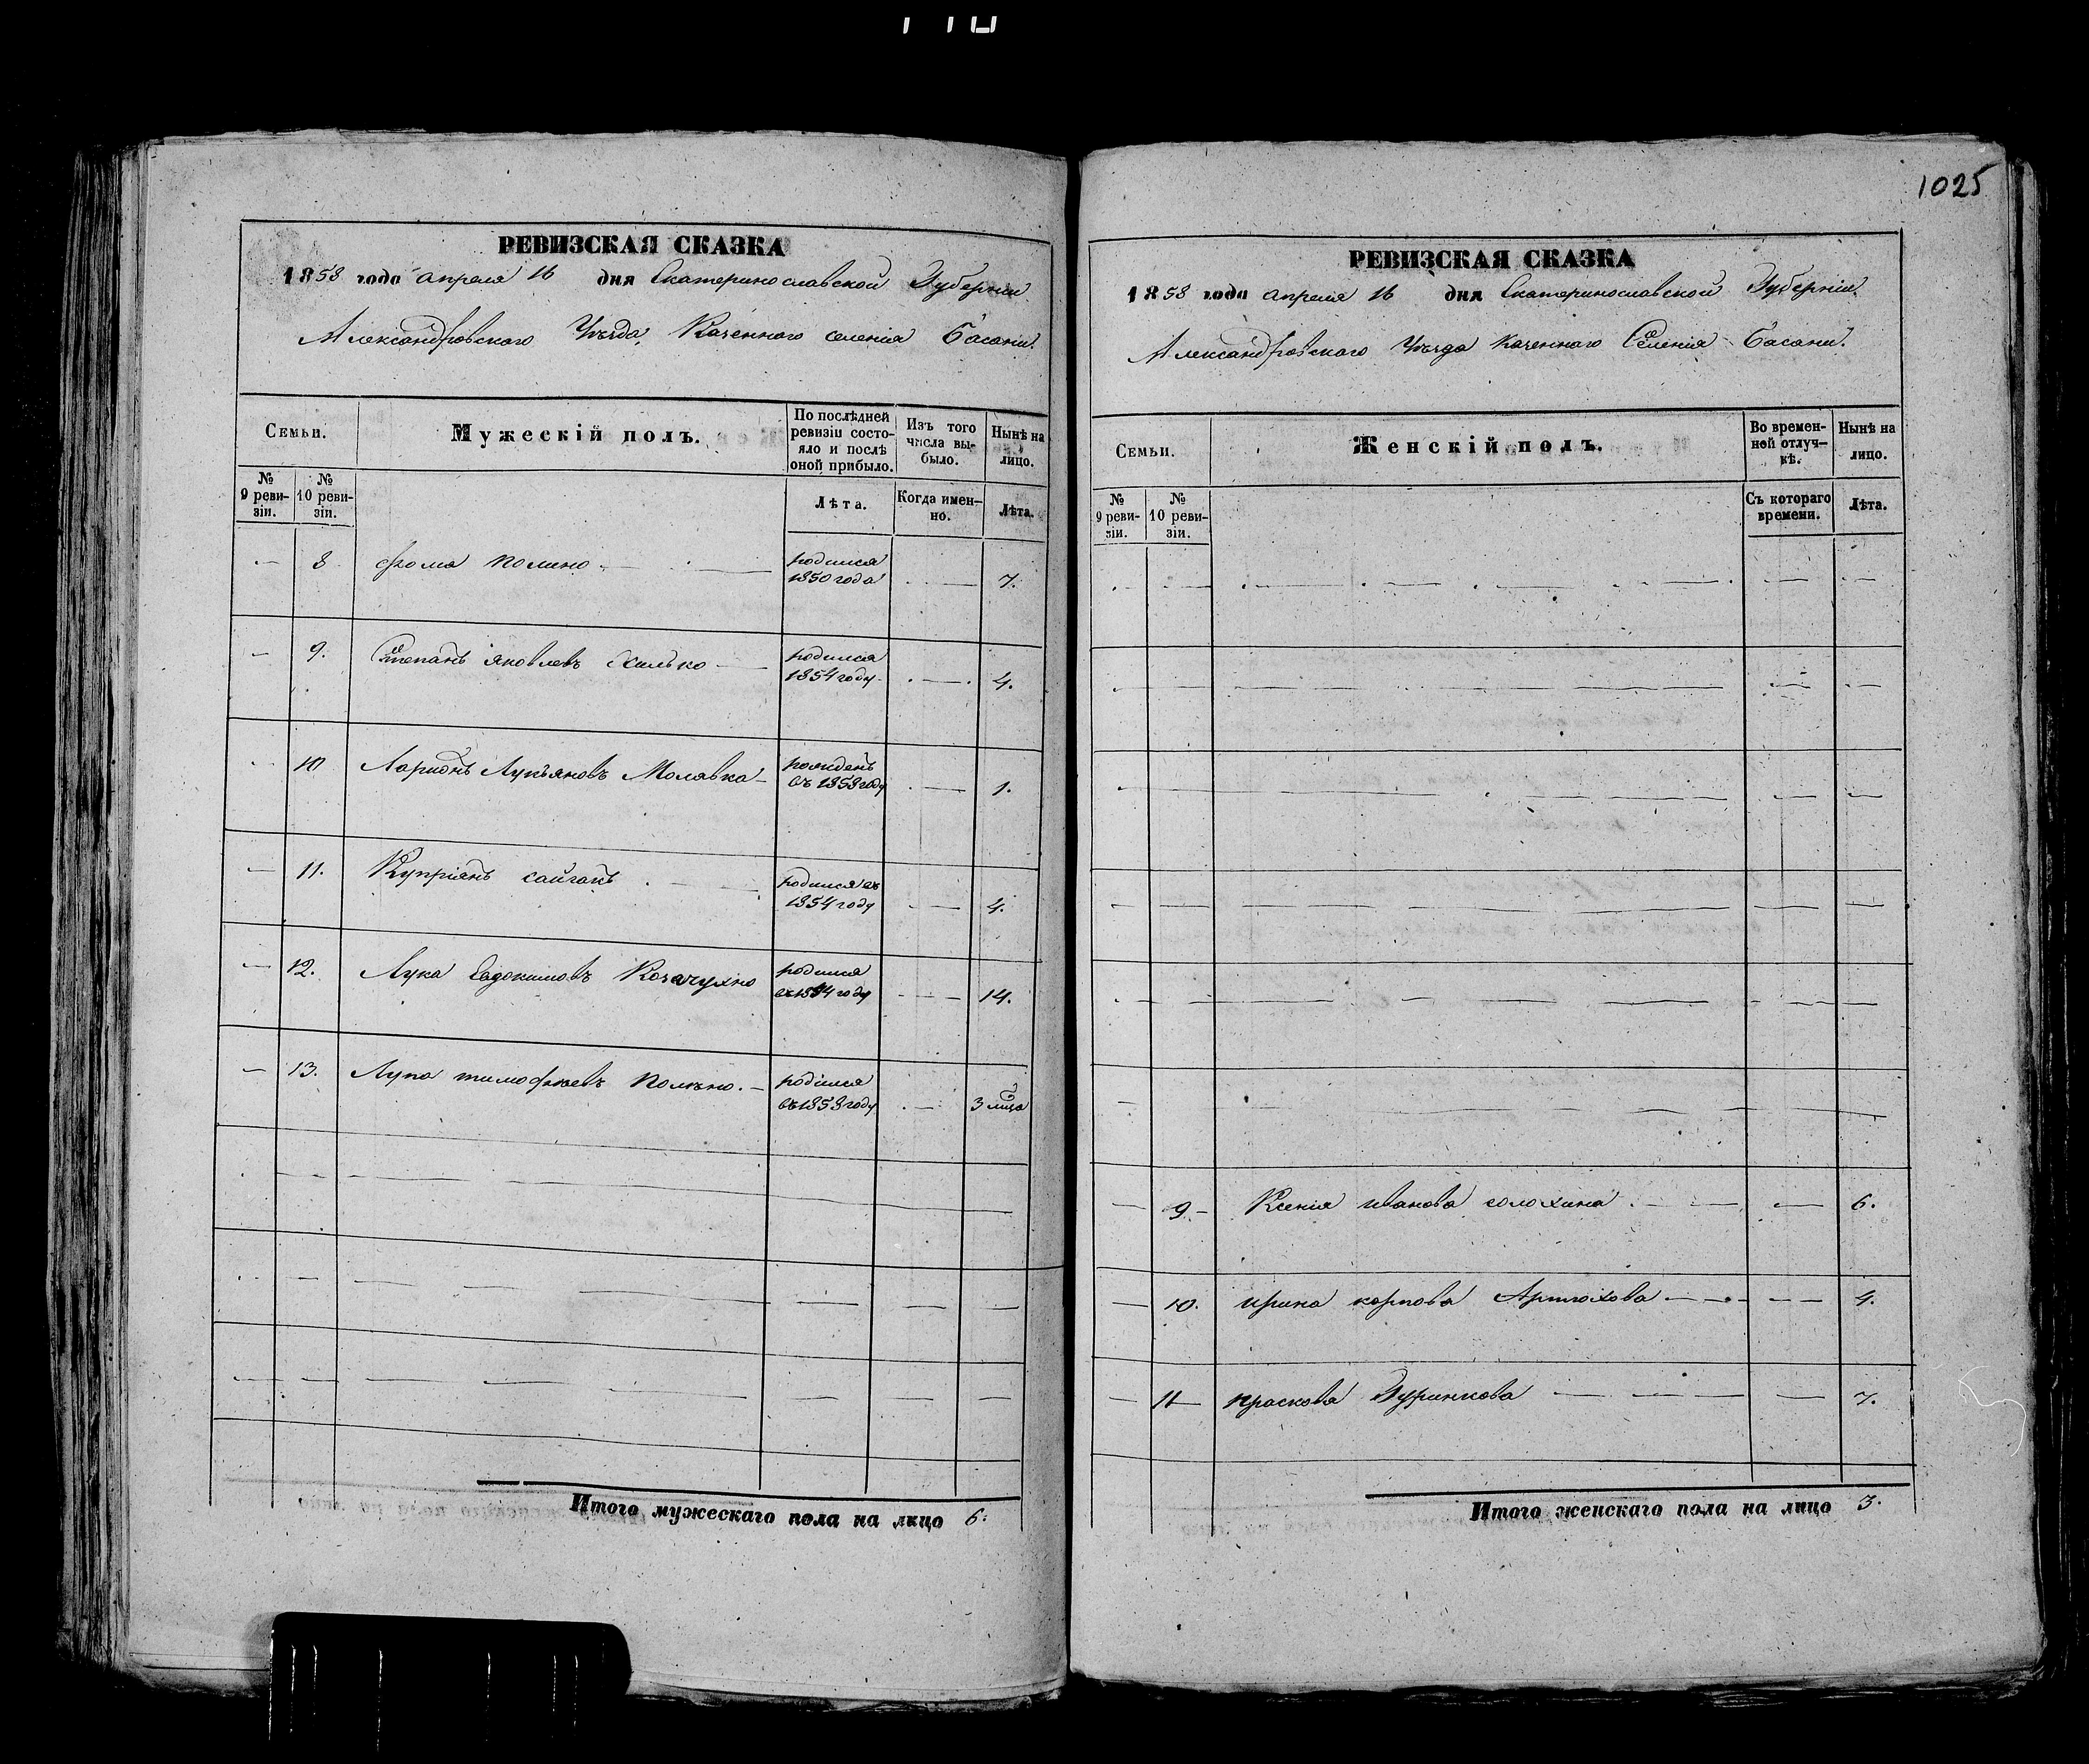 1025
РЕВИЗСКАЯ СКАЗКА
1858 года апреля 16 дня Екатеринославской Губерніи
Александровскаго Уѣзда, Казеннаго селенія Басани.
Семьи.
Мужескій полъ.
По послѣдней ревизіи состояло и послѣ оной прибыло.
Изъ того числа выбыло.
Нынѣ на лицо.
№ 9 ревизіи.
№ 10 ревизіи.
Лѣта.
Когда именно.
Лѣта.
— 8 Фома — родился 1850 года — 7.
— 9. Степанъ Яковлевъ Хилько — родился 1854 году — 4.
— 10 Ларионъ Лукьяновъ Молявка — рожденъ въ 1858 году — 1.
— 11. Купріянъ сайгакъ — родился въ 1854 году — 4.
— 12. Лука Евдокимовъ родился въ 1844 году — 14.
— 13. Лупа тимофѣевъ — родился въ 1858 году — 3
Итого мужескаго пола на лицо 6.
РЕВИЗСКАЯ СКАЗКА
1858 года апреля 16 дня Екатеринославской Губерніи.
Александровскаго Уѣзда казеннаго Селенія Басани.
Семьи.
Женскій полъ.
Во временной отлучкѣ.
Нынѣ на лицо.
№ 9 ревизіи.
№ 10 ревизіи.
Съ котораго времени.
Лѣта.
— 9 — Ксенія иванова солохина — 6.
— 10. ирина карпова Артюхова — 4.
— 11 — праскова Гуринкова — 7.
Итого женскаго пола на лицо 3.